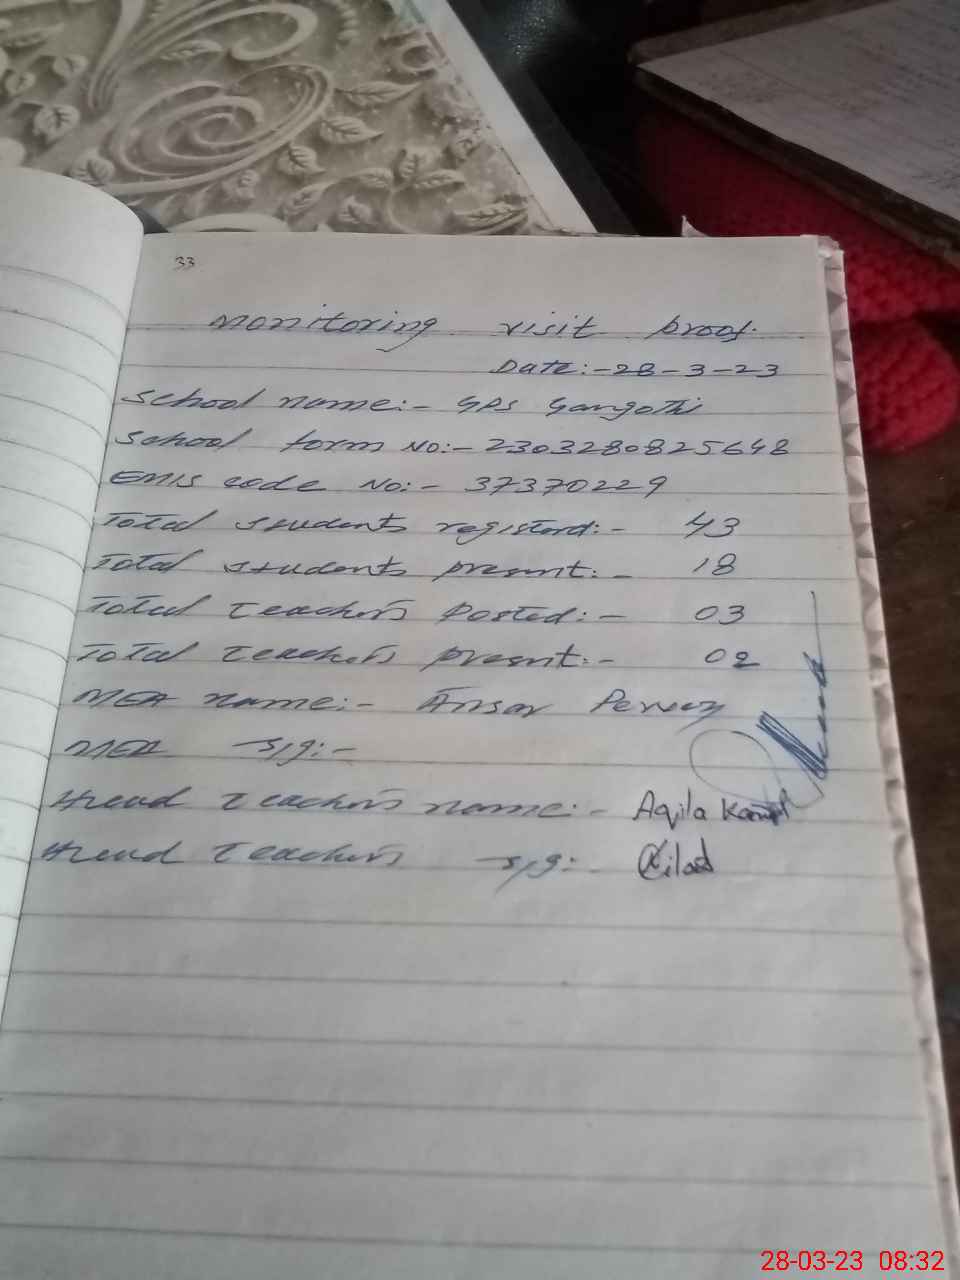 33
Monitoring visit proof.
Date:-28-3-23
School name:- GPS Gangothi
School form No:- 2303280825648
EMIS code No:- 37370229
Total students registerd:- 43
Total students present:- 18
Total teachers Posted:- 03
Total teachers present:- 02
MEA name:- Ansar Pervez
MEA sig:-
Head teachers name:- Aqila
Head teachers sig:-
28-03-23 08:32